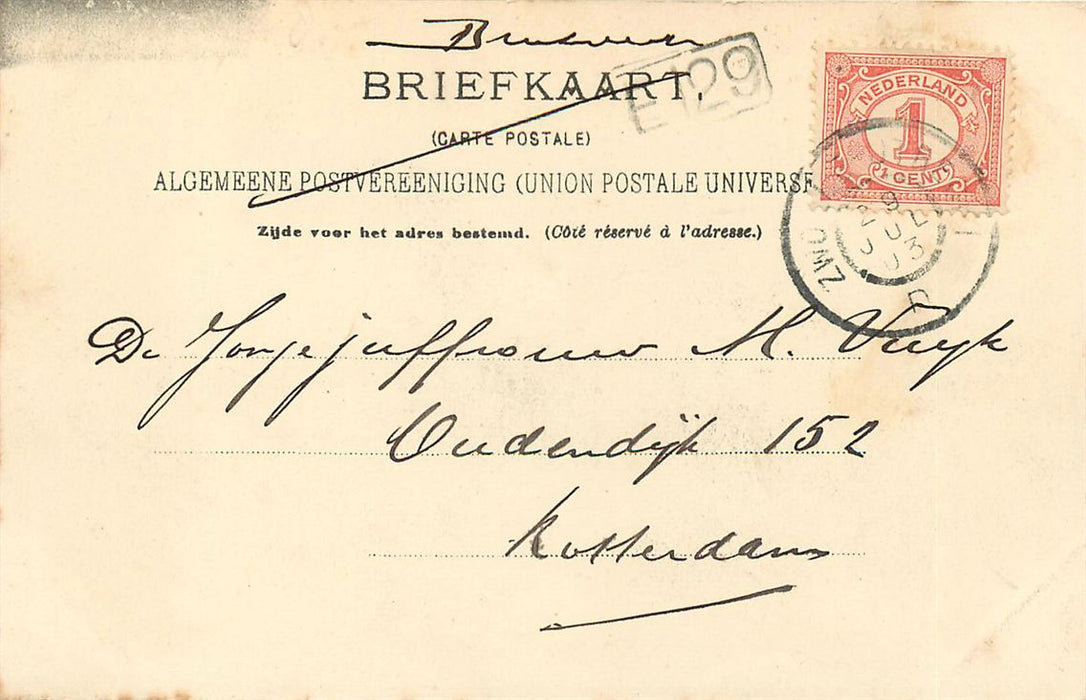 BRIEFKAART.
E 129
(CARTE POSTALE)
ALGEMEENE POSTVEREENIGING (UNION POSTALE UNIVERSE
Zijde voor het adres bestemd. (Côté réservé à l'adresse.)
NEDERLAND
1
CENT
29
JUL
03
De Jongejuffrouw M. Vuyk
Oudendijk 152
Rotterdam